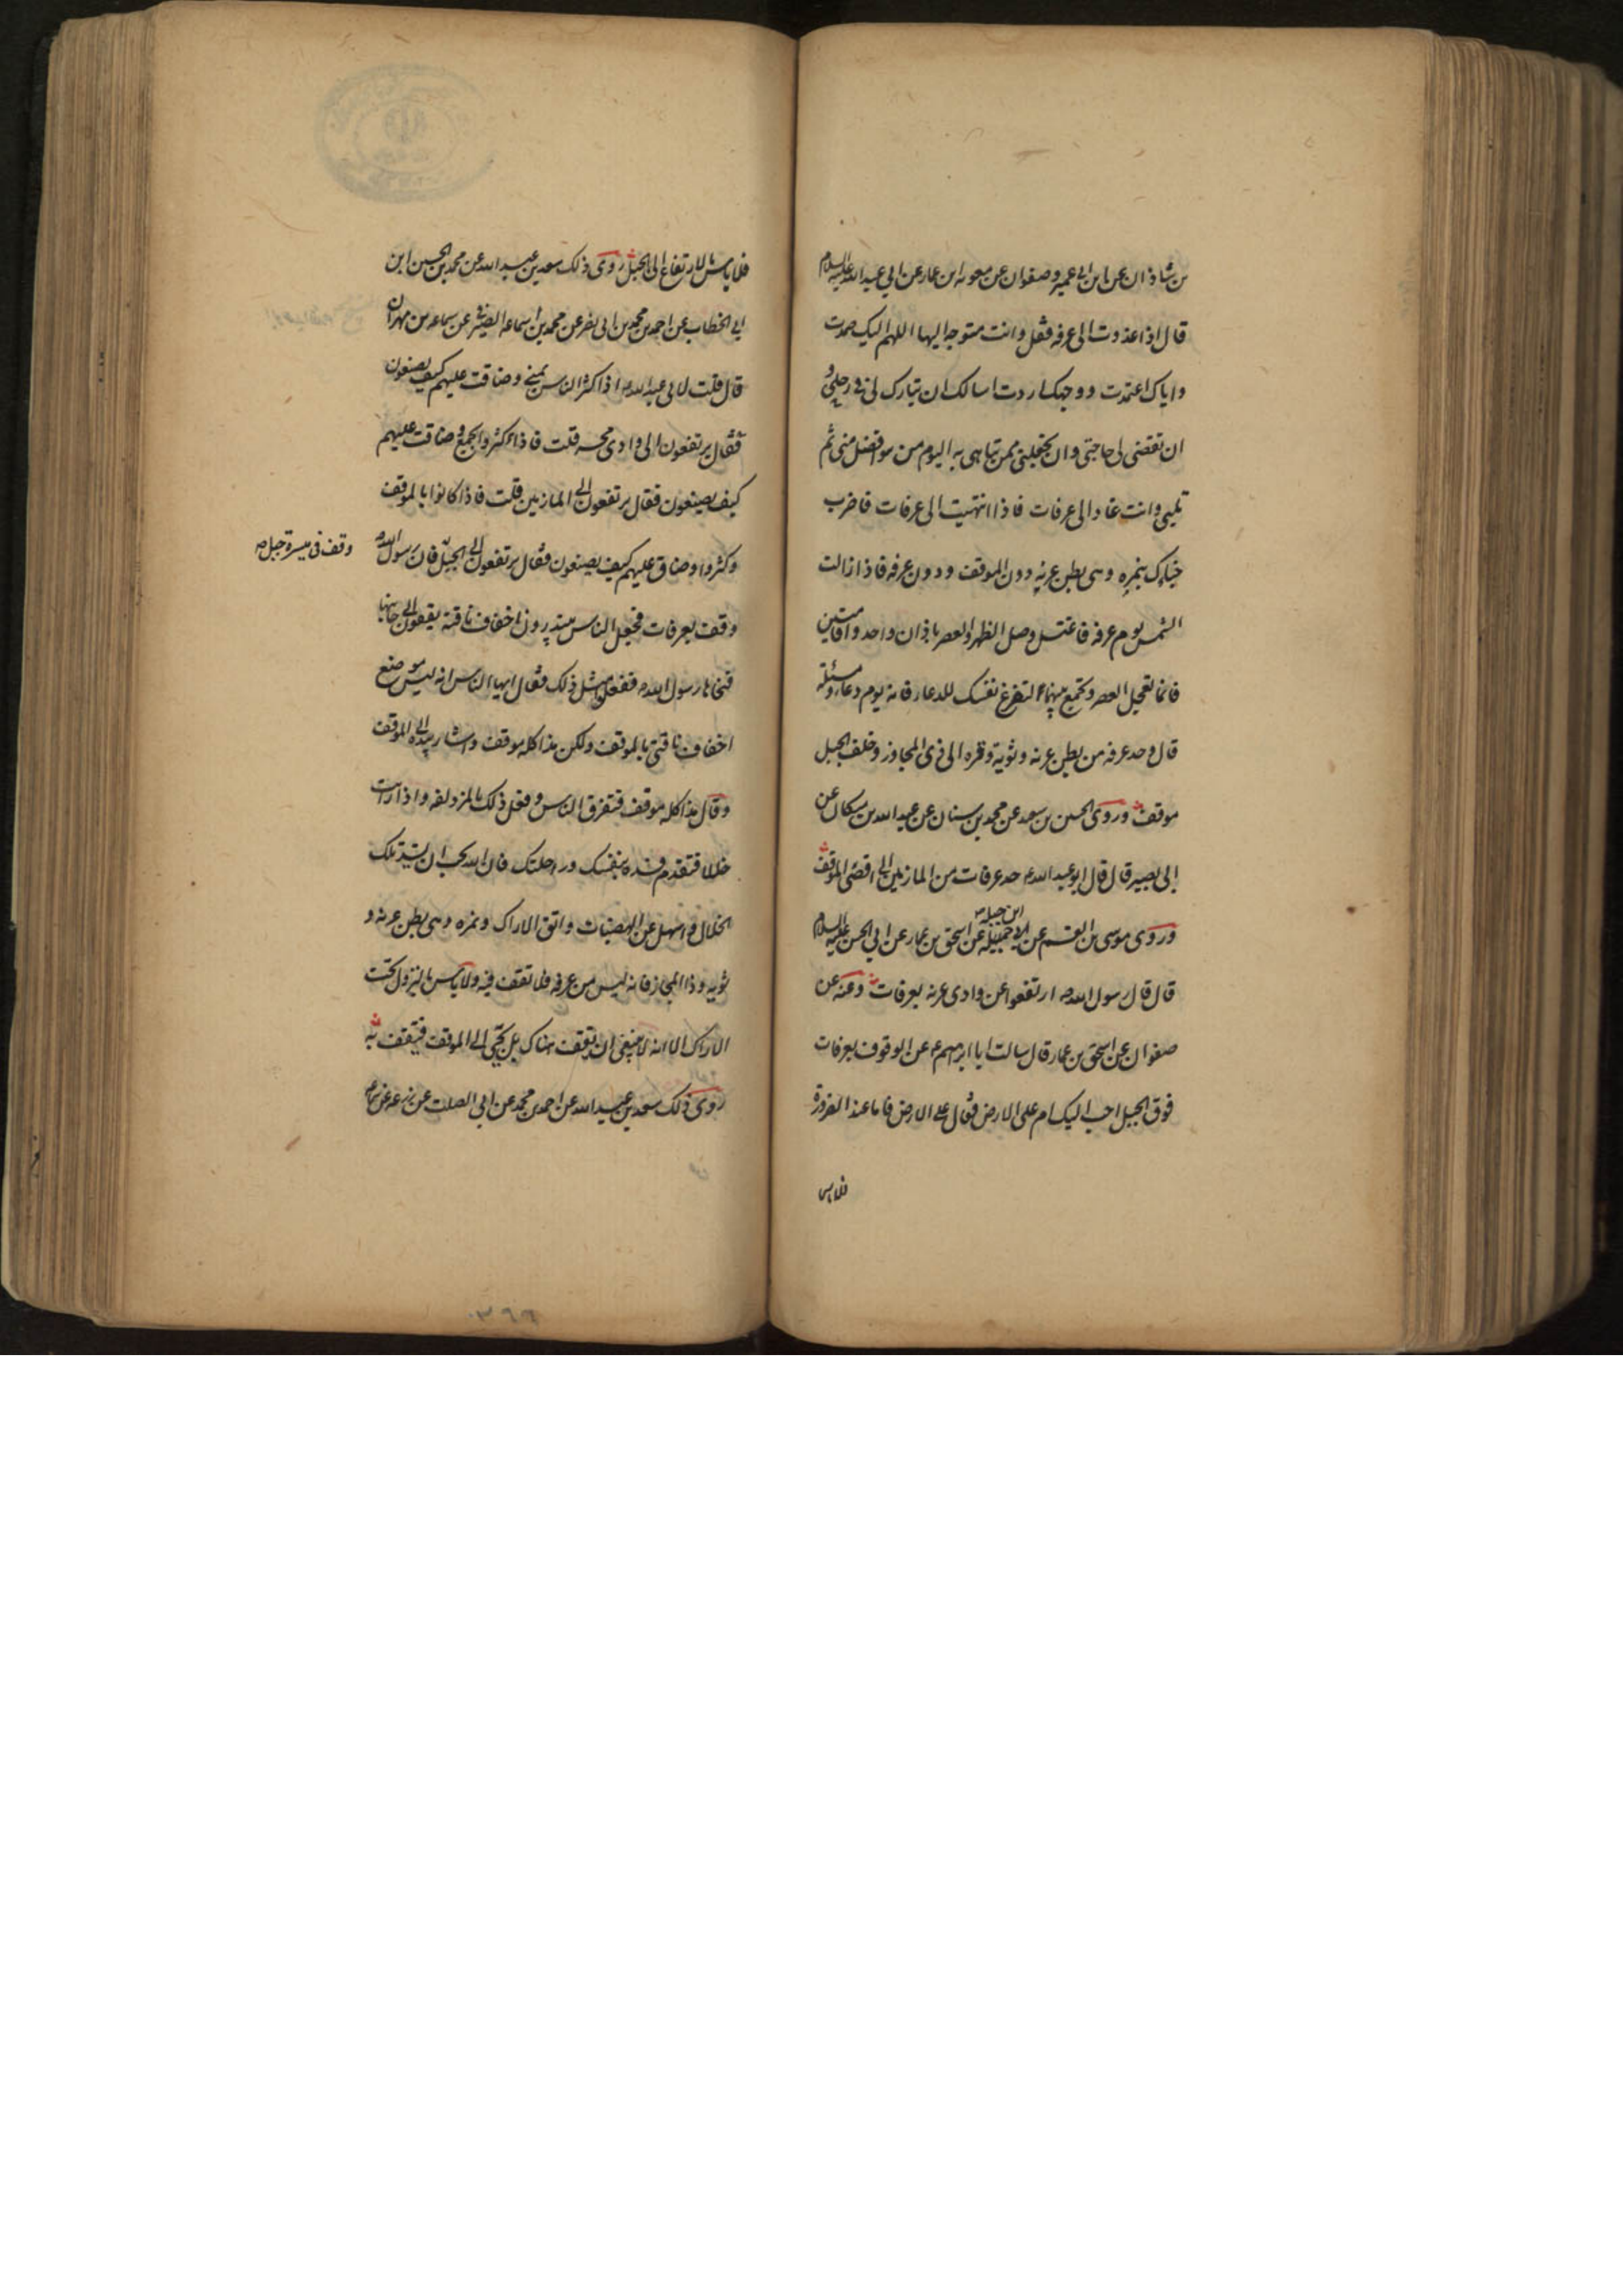 بن شاذان عن ابن ابي عمير وصفوان عن معوية ابن عمار عن ابي عبد الله عليه السلام
قال اذا غدوت الى عرفه فقل وانت متوجه اليها اللهم اليك صمدت
واياك اعتمدت ووجهك اردت اسالك ان تبارك لي في رحلتي و
ان تقضي لي حاجتي وان تجعلني ممن تباهى به اليوم من هو افضل مني ثم
تلبي وانت غاد الى عرفات فاذا انتهيت الى عرفات فاضرب
خباك بنمره وهي بطن عرنه دون الموقف ودون عرفه فاذا زالت
الشمس يوم عرفه فاغتسل وصل الظهر والعصر باذان واحد واقامتين
فانما تعجيل العصر وتجمع بينهما لتفرغ نفسك للدعاء فانه يوم دعاء ومسئلة
قال وحد عرفه من بطن عرنه وثوية ونمره الى ذي المجاز وخلف الجبل
موقف وروى الحسين بن سعيد عن محمد بن سنان عن عبد الله بن مسكان عن
ابي بصير قال قال ابو عبد الله ع حد عرفات من المازمين الى اقصى الموقف
ابن جبله
وروى موسى بن القسم عن ابي جميلة عن اسحق بن عمار عن ابي الحسن عليه السلام
قال قال رسول الله ص ارتفعوا عن وادي عرنه بعرفات وعنه عن
صفوان عن اسحق بن عمار قال سالت ابا ابرهيم ع عن الوقوف بعرفات
فوق الجبل احب اليك ام على الارض فقال على الارض فاما عند الضرورة
فلا باس
فلا باس بالارتفاع الى الجبل روى ذلك سعد بن عبد الله عن محمد بن الحسين ابن
ابي الخطاب عن احمد بن محمد بن ابي نصر عن محمد بن سماعه الصيرفي عن سماعه بن مهران
قال قلت لابي عبد الله ع اذا كثر الناس بمنى وضاقت عليهم كيف يصنعون
فقال يرتفعون الى وادي محسر قلت فاذا كثروا بجمع وضاقت عليهم
كيف يصنعون فقال يرتفعون الى المازمين قلت فاذا كانوا بالموقف
وكثروا وضاق عليهم كيف يصنعون فقال يرتفعون الى الجبل فان رسول الله ص
وقف في ميسرة جبل
وقف بعرفات فجعل الناس يبتدرون اخفاف ناقته يقفون الى جانبها
فنحاها رسول الله ص ففعلوا مثل ذلك فقال ايها الناس انه ليس موضع
اخفاف ناقتي بالموقف ولكن هذا كله موقف واشار بيده الى الموقف
وقال هذا كله موقف فتفرق الناس وفعل ذلك بالمزدلفه واذا رايت
خللا فتقدم فسده بنفسك وراحلتك فان الله يحب ان تسد تلك
الخلال وانتهل عن الهضبات واتق الاراك ونمره وهي بطن عرنه و
ثويه وذا المجاز فانه ليس من عرفه فلا تقف فيه ولا باس بالنزول تحت
الاراك الا انه لا ينبغي ان يقف هناك بل يجئ الى الموقف فيقف به
روى ذلك سعد بن عبد الله عن احمد بن محمد عن ابي الصلت عن زرعه عن سماعه